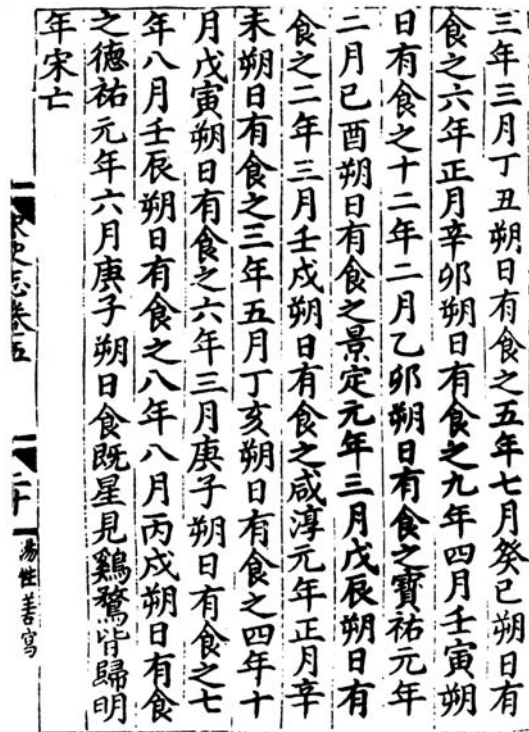 三年三月丁丑朔日有食之五年七月癸巳朔日有
食之六年正月辛卯朔日有食之九年四月壬寅朔
日有食之十二年二月乙卯朔日有食之寶祐元年
二月己酉朔日有食之景定元年三月戊辰朔日有
食之二年三月壬戌朔日有食之咸淳元年正月辛
未朔日有食之三年五月丁亥朔日有食之四年十
月戊寅朔日有食之六年三月庚子朔日有食之七
年八月壬辰朔日有食之八年八月丙戌朔日有食
之德祐元年六月庚子朔日食既星見鷄鶩皆歸明
年宋亡
宋史志卷五
二十
湯性善寫